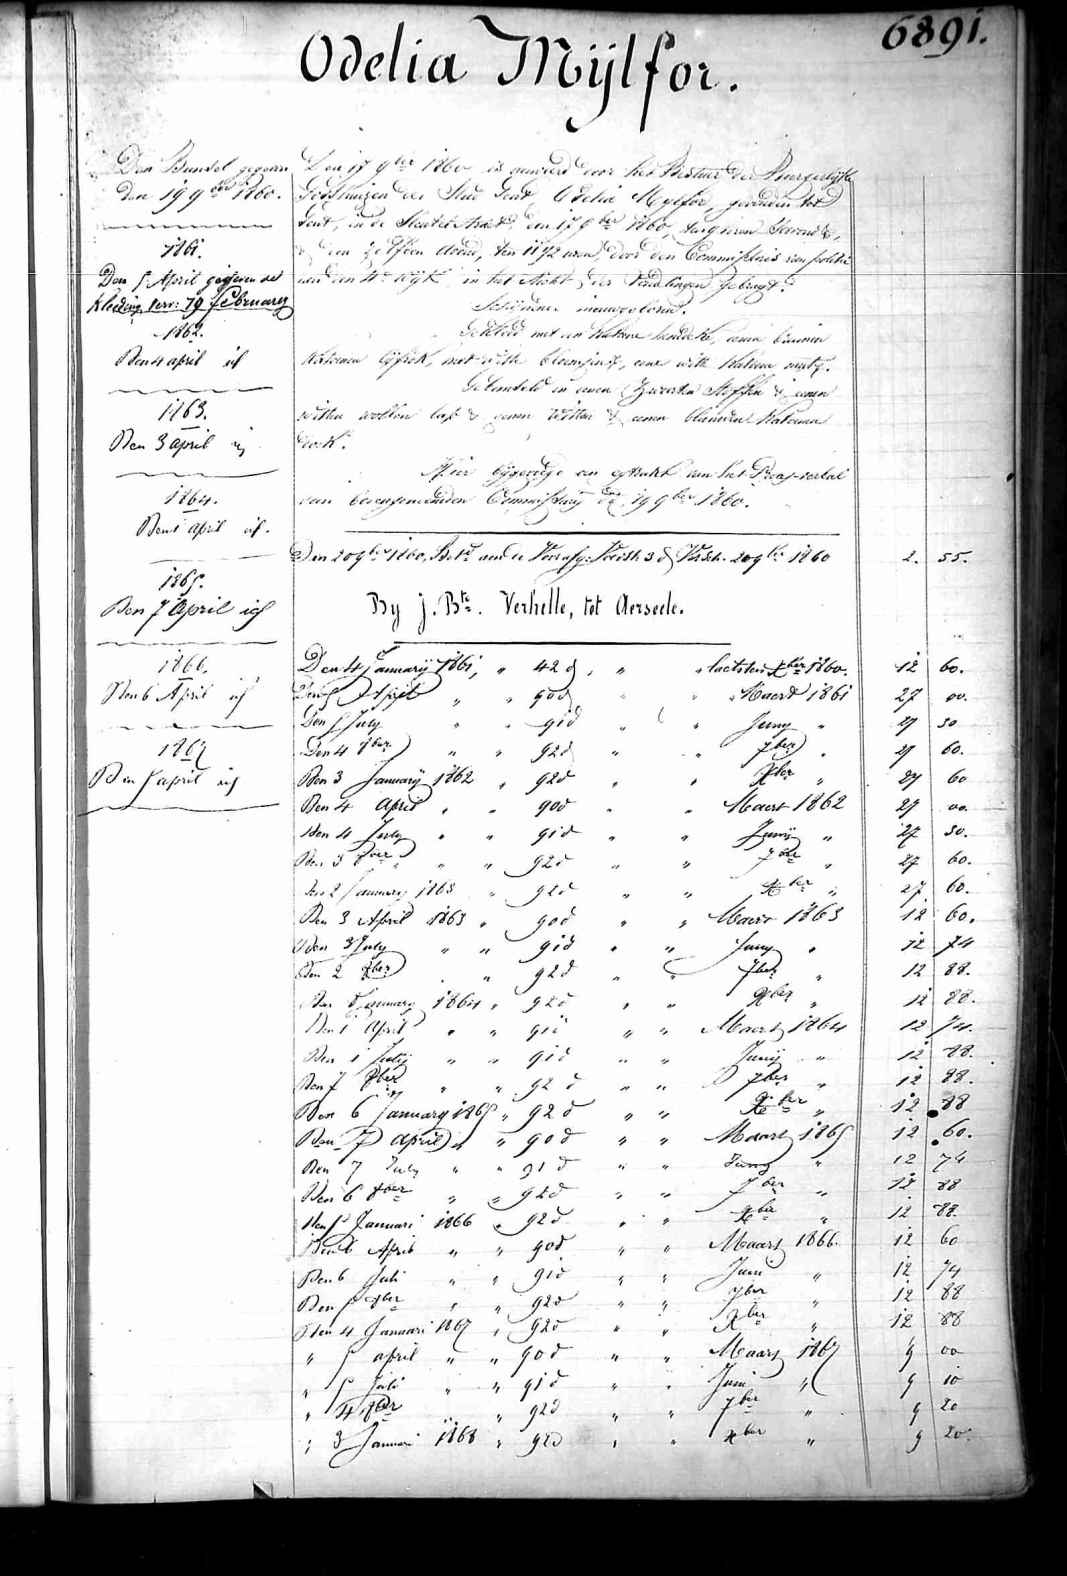 6891.
Odelia Mijlfor.
Den Bundel gegeven
den 19 9ber 1860.
1861.
Den 5 April gegeven de
kleeding verv: 19 february
1862.
Den 4 april id
1863.
Den 3 april id
1864.
Den 1 April id.
1865.
Den 7 April id
1866.
Den 6 April id
1867
Den 5 april id
Den 17 9ber 1860 is aenveerd door het Bestuer der Burgerlijke
Godshuizen der Stad Gent, Odelia Mylfor, gevonden tot
Gent, in de Sleutelstraet, den 17 9ber 1860,
den zelfden avond, ten 11 1/2 uren, door den Commissaris van politie
van den 4e Wijk in het Gesticht der Vondelingen gebragt.
Schijnende nieuwgeboren.
Gekleed met een katoene hemdeke, eenen blauwen
katoenen lijfrok, met witte bloemjens, eene witte katoene muts.
Gebundeld in eenen zwarten Stoffen & eenen
witten wollen lap & eenen witten & eenen blauwen katoenen
doek.
Hier bijgevoegd een extrakt van het Proces-verbal
van bovengemelden Commissaris de 19 9ber 1860.
Den 20 9ber 1860, 3 d 20 9ber 1860 2. 55.
By J. Bte. Verhelle, tot Aerseele.
Den 4 January 1861, " 42 d, " " laetsten Xber 1860. 12 60.
Den 5 April " " 90 d " " Maert 1861 27 00.
Den 5 July " " 91 d " " Juny " 27 30
Den 4 8ber " " 92 d " " 7ber " 27 60.
Den 3 January 1862 " 92 d " " Xber " 27 60
Den 4 April " " 90 d " " Maert 1862 27 00.
Den 4 July " " 91 d " " Junij " 27 30.
Den 3 8ber " " 92 d " " 7ber " 27 60.
Den 2 January 1863 " 92 d " " Xber " 27 60.
Den 3 April 1863 " 90 d " " Maert 1863 12 60.
Den 3 July " " 91 d " " Juny " 12 74
Den 2 8ber " " 92 d " " 7ber " 12 88.
Den 8 January 1864 " 92 d " " Xber " 12 88.
Den 1 April " " 91 d " " Maert 1864 12 74.
Den 1 July " " 91 d " " Junij " 12 88.
Den 7 8ber " " 92 d " " 7ber " 12 88.
Den 6 January 1865 " 92 d " " Xber " 12 88
Den 7 April " " 90 d " " Maart 1865 12 60.
Den 7 July " " 91 d " " Juny " 12 74
Den 6 8ber " " 92 d " " 7ber " 12 88
Den 5 Januari 1866 " 92 d " " Xber " 12 88.
Den 6 April " " 90 d " " Maart 1866. 12 60
Den 6 Juli " " 91 d " " Juni " 12 74
Den 5 8ber " " 92 d " " 7ber " 12 88
Den 4 Januari 1867 " 92 d " " Xber " 12 88
" 5 april " " 90 d " " Maart 1867 9 00
" 5 Juli " " 91 d " " Juni " 9 10
" 4 8ber " 92 d " " 7ber " 9 20
" 3 Januari 1868 " 92 d " " Xber " 9 20.